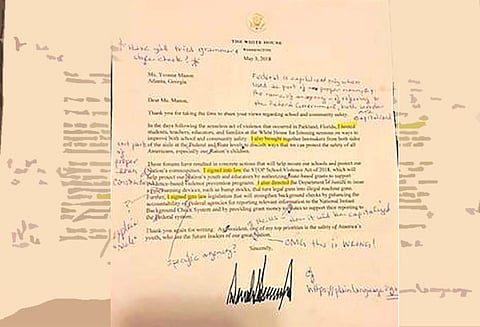 THE WHITE HOUSE
WASHINGTON
May 3, 2018
Have y'all tried grammar &
style check?
Ms. Yvonne Mason
Atlanta, Georgia
Federal is capitalized only when
used as part of a proper noun
Federal Government,
capitalized
Dear Ms. Mason,
Thank you for taking the time to share your views regarding school and community safety.
In the days following the senseless act of violence that occurred in Parkland, Florida, I hosted
students, teachers, educators, and families at the White House for listening sessions on ways to
improve both school and community safety. I also brought together lawmakers from both sides
of the aisle at the Federal and State levels to discuss ways that we can protect the safety of all
Americans, especially our Nation's children.
These forums have resulted in concrete actions that will help secure our schools and protect our
Nation's communities. I signed into law the STOP School Violence Act of 2018, which will
help protect our Nation's youth and educators by authorizing State-based grants to support
evidence-based violence prevention programs. I also directed the Department of Justice to issue
a rule banning devices, such as bump stocks, that turn legal guns into illegal machine guns.
Further, I signed into law legislation that will strengthen background checks by enhancing the
accountability of Federal agencies for reporting relevant information to the National Instant
Background Check System and by providing grant money to States to support their reporting to
the Federal system.
Thank you again for writing. As president, one of my top priorities is the safety of America's
youth, who are the future leaders of our great Nation.
OMG this is WRONG!
specific agency?